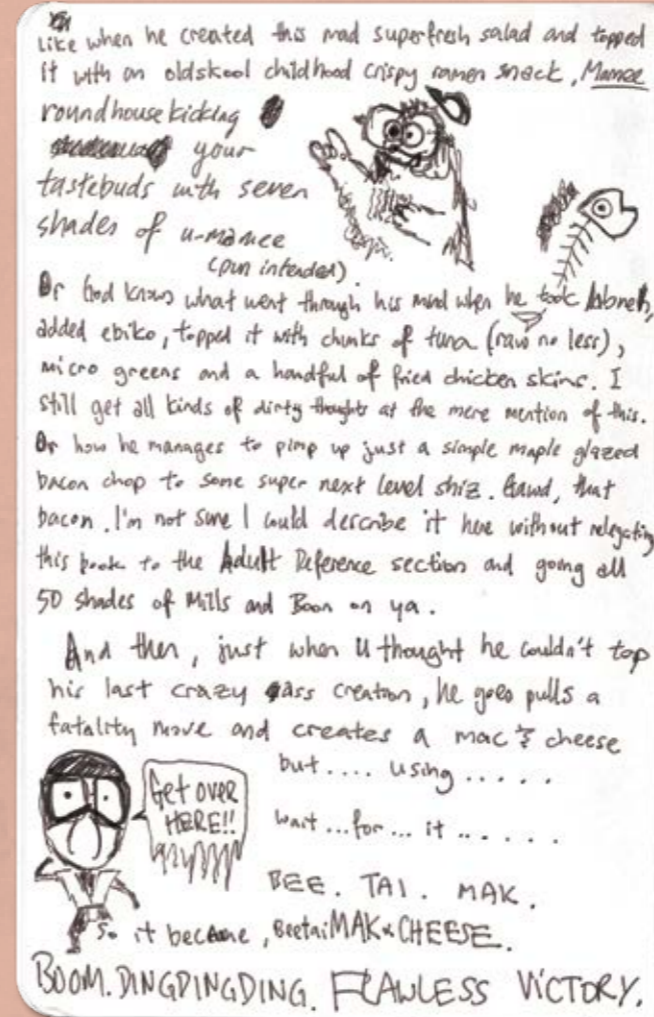 like when he created this mad superfresh salad and topped
it with an oldskool childhood crispy ramen snack, Mamee
roundhouse kicking
your
tastebuds with seven
shades of u-mamee
(pun intended).
Or God knows what went through his mind when he took labneh,
added ebiko, topped it with chunks of tuna (raw no less),
micro greens and a handful of fried chicken skins. I
still get all kinds of dirty thoughts at the mere mention of this.
Or how he manages to pimp up just a simple maple glazed
bacon chop to some super next level shiz. Gawd, that
bacon. I'm not sure I could describe it here without relegating
this book to the Adult Reference section and going all
50 shades of Mills and Boon on ya.
And then, just when u thought he couldn't top
his last crazy ass creation, he goes pulls a
fatality move and creates a mac & cheese
but.... using.....
Get over
HERE!!
wait...for... it ......
BEE. TAI. MAK.
So it became, BeetaiMAK&CHEESE.
BOOM. DINGDINGDING. FLAWLESS VICTORY.